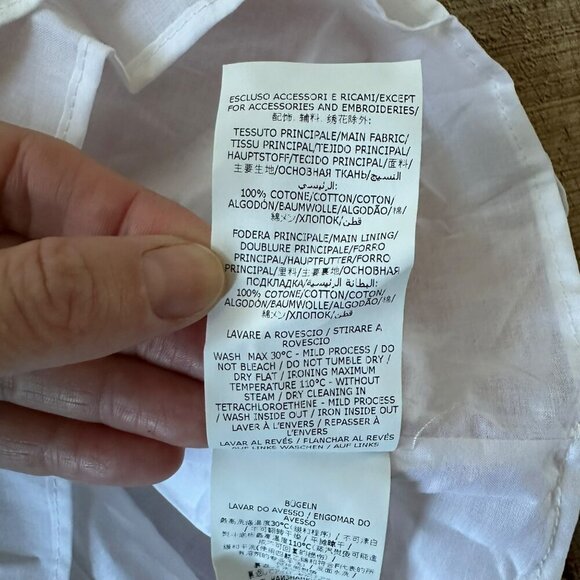 ESCLUSO ACCESSORI E RICAMI/EXCEPT
FOR ACCESSORIES AND EMBROIDERIES/
配饰, 辅料, 绣花除外:
TESSUTO PRINCIPALE/MAIN FABRIC/
TISSU PRINCIPAL/TEJIDO PRINCIPAL/
HAUPTSTOFF/TECIDO PRINCIPAL/面料/
主要生地/ОСНОВНАЯ ТКАНЬ/النسيج
الرئيسي:
100% COTONE/COTTON/COTON/
ALGODÓN/BAUMWOLLE/ALGODÃO/棉/
綿メン/ХЛОПОК/قطن
FODERA PRINCIPALE/MAIN LINING/
DOUBLURE PRINCIPALE/FORRO
PRINCIPAL/HAUPTFUTTER/FORRO
PRINCIPAL/里料/主要裏地/ОСНОВНАЯ
ПОДКЛАДКА/البطانة الرئيسية:
100% COTONE/COTTON/COTON/
ALGODÓN/BAUMWOLLE/ALGODÃO/棉/
綿メン/ХЛОПОК/قطن
LAVARE A ROVESCIO / STIRARE A
ROVESCIO
WASH MAX 30°C - MILD PROCESS / DO
NOT BLEACH / DO NOT TUMBLE DRY /
DRY FLAT / IRONING MAXIMUM
TEMPERATURE 110°C - WITHOUT
STEAM / DRY CLEANING IN
TETRACHLOROETHENE - MILD PROCESS
/ WASH INSIDE OUT / IRON INSIDE OUT
LAVER À L'ENVERS / REPASSER À
L'ENVERS
LAVAR AL REVÉS / PLANCHAR AL REVÉS
AUF LINKS WASCHEN / AUF LINKS
BÜGELN
LAVAR DO AVESSO / ENGOMAR DO
AVESSO
最高洗涤温度30°C(缓和程序) / 不可漂白
/ 不可翻转干燥 / 平摊晾干 /